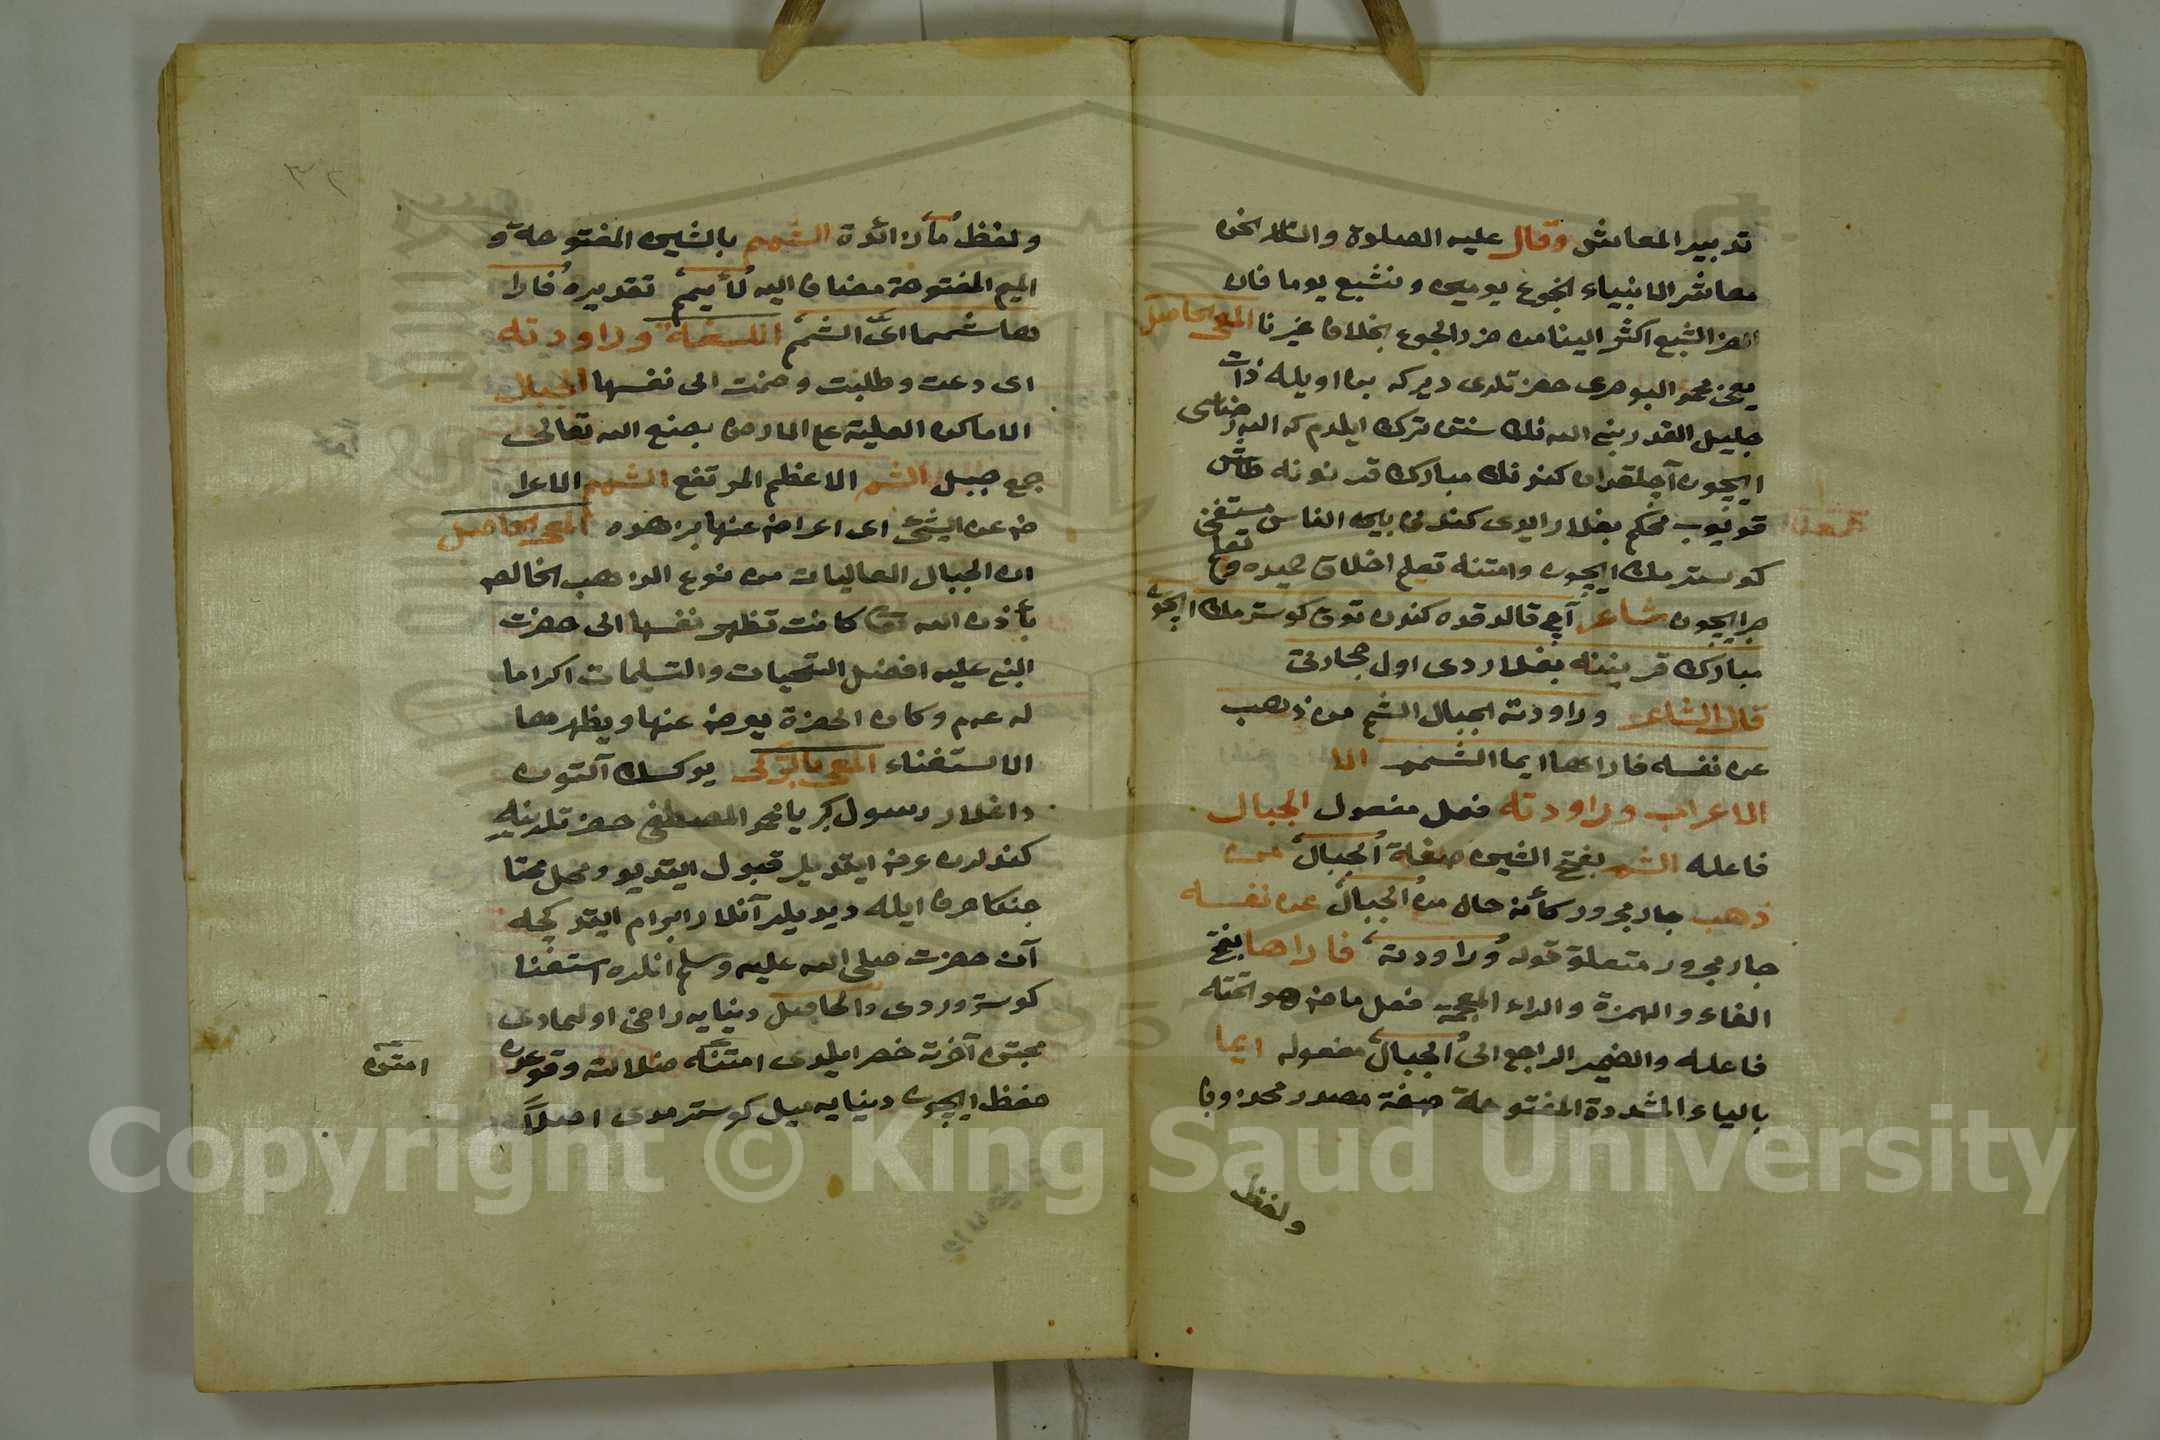 تدبير المعاش وقال عليه الصلوة والسلام نحن
معاشر الانبياء نجوع يومين ونشبع يوما فان
الشبع اكثر الينا من الجوع بخلاف غيرنا المعنى الحاصل
يعنى محمد البوصرى حضرتلرى ديركه بن اويله ذات
جليل القدر نبى الله نك سنتن ترك ايلدم كه الله رضاسى
ايچون آچلقدن كندونك مبارك قرنونه طاش
قويوب محكم بغلار ايدى كندوى بين الناس مستغنى
كوسترمك ايچون وامتنه تعلم اخلاق حميده
ايچون شاعر آچ قالدقده كندن توق كوسترمك ايچون
مبارك قرينه بغلاردى اول حجارتى
قال الشاعر وراودته الجبال الشم من ذهب
عن نفسه فاراها ايما الشمم الا
الاعراب وراودته فعل مفعول الجبال
فاعله الشم بفتح الشين صفة الجبال من
ذهب جار مجرور كائن حال من الجبال عن نفسه
جار مجرور متعلق قوله وراودته فاراها بفتح
الفاء والهمزة والراء المعجمة فعل ماض هو تحته
فاعله والضمير الراجع الى الجبال مفعوله ايما
بالياء المشددة المفتوحة صفة مصدر محذوف
ولفظ
٣٢
ولفظ ما زائدة الشمم بالشين المفتوحة و
الميم المفتوحة مضاف اليه لأيم تقديره فارا
ها شمما اىّ الشمم اللغة وراودته
اى دعت وطلبت وضمت الى نفسها الجبال
الاماكن العلية على الارض بصنع الله تعالى
جمع جبل الشم الاعظم المرتفع الشمم الاعرا
ض عن الشئ اى اعراض عنها بزهده المعنى الحاصل
ان الجبال العاليات من نوع الذهب الخالص
بأذن الله تعا كانت تظهر نفسها الى حضرت
النبى عليه افضل التحيات والتسليمات اكراما
له عم وكان الحضرة يعرض عنها ويظهر لها
الاستغناء المعنى بالتركى يوكسك آلتون
داغلار رسول كبريا محمد المصطفى حضرتلرينه
كندولرن عرض ايتديلر قبول ايتديو ومحل محتا
جنكا صرف ايله ديديلر آنلار ابرام ايتدكجه
آن حضرت صلى الله عليه وسلم انلره استغنا
كوستروردى والحاصل دنيايه راضى اولمادى
محبتن آخرته حصر ايلدى امتنه ضلالته وقوعدن
امتن
حفظ ايچون دنيايه ميل كوسترمدى اصلاً
Copyright © King Saud University